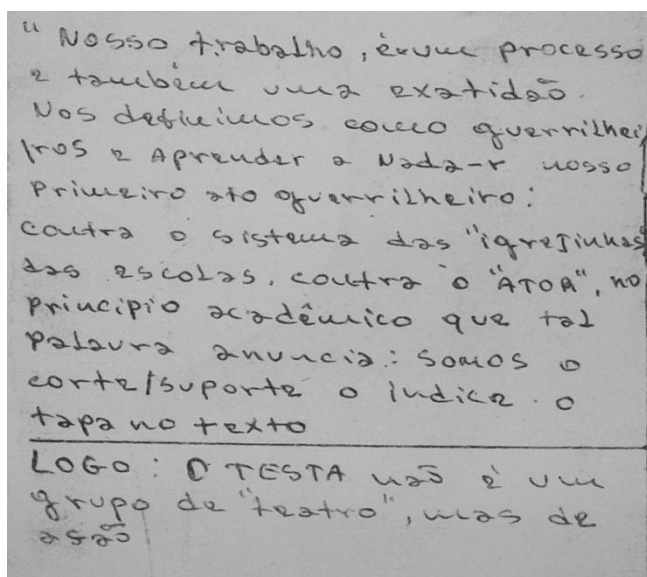 " Nosso trabalho, é um processo
e também uma exatidão.
Nos definimos como guerrilhei
ros e Aprender a Nada-r nosso
primeiro ato guerrilheiro:
contra o sistema das "igrejinhas
das escolas, contra o "ATOR", no
principio acadêmico que tal
palavra anuncia: somos o
corte/suporte o índice. o
tapa no texto
LOGO: O TESTA não é um
grupo de "teatro", mas de
asão